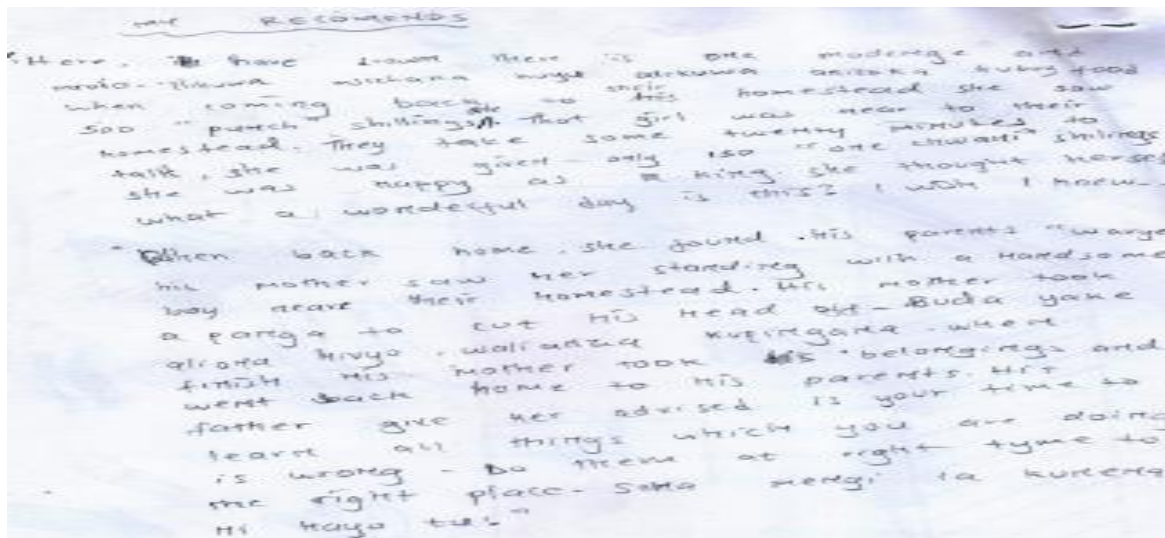 my RECOMENDS
"Here, have down there is one moderage and
mroto. Ilikuwa mschana huyu alikuwa food
when coming back to their his homestead she saw
500 "punch" shillings. That girl was near to their
homestead. They take some twenty minutes to
talk, she was given only 150 "one chwani" shilings
she was happy as king. she thought herself
what a wonderful day is this? I wish I knew-
"When back home. she found his parents "wange
his mother saw her standing with a Handsome
boy neare their homestead. His mother took
a panga to cut his head off - Buda yake
aliona hivyo. walianza kupingana. when
finish his mother took his belongings and
went back home to his parents. His
father give her advised is your time to
learn all things which you are doing
is wrong - Do them at right tyme to
the right place. Sina mengi ya kunena
Hi hayo tu."